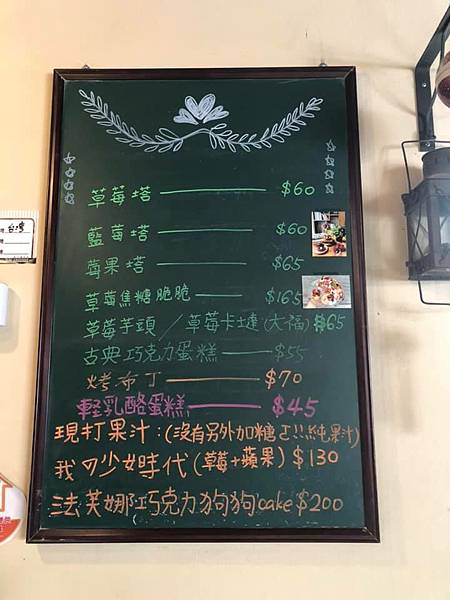 草莓塔 $60
藍莓塔 $60
莓果塔 $65
草莓焦糖脆脆 $165
草莓芋頭／草莓卡士達(大福) $65
古典巧克力蛋糕 $55
烤布丁 $70
輕乳酪蛋糕 $45
現打果汁:(沒有另外加糖ㄛ!!純果汁)
我の少女時代(草莓+蘋果) $130
法芙娜巧克力狗狗cake $200